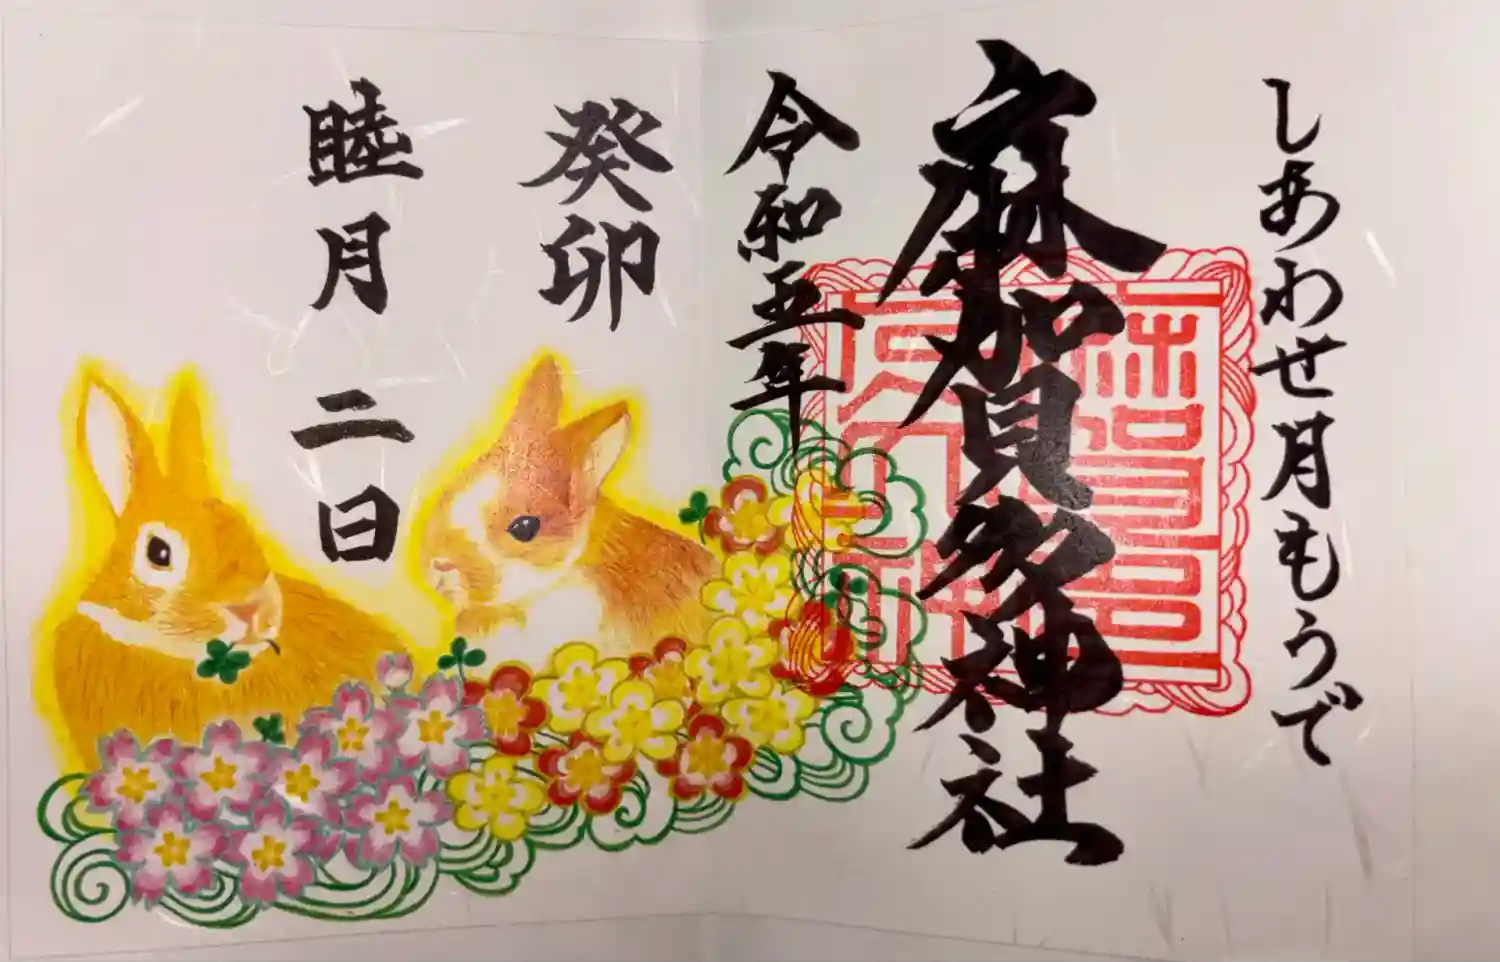 しあわせ月もうで
麻加多神社
令和五年
癸卯
睦月二日